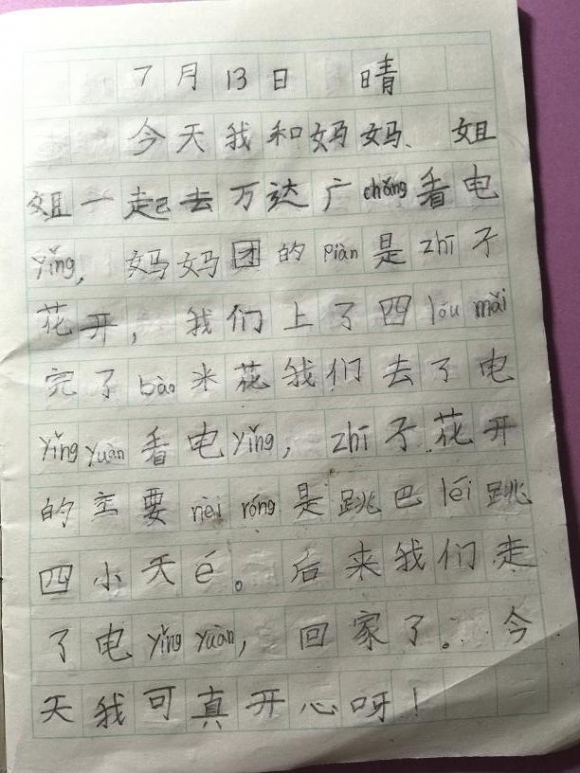 7月13日 晴
今天我和妈妈、姐
姐一起去万达广chǎng看电
yǐng，妈妈团的piàn是zhī子
花开，我们上了四lóu mǎi
完了bào米花我们去了电
yǐng yuàn看电yǐng，zhī子花开
的主要nèi róng是跳巴léi跳
四小天é。后来我们走
了电yǐng yuàn，回家了。今
天我可真开心呀！